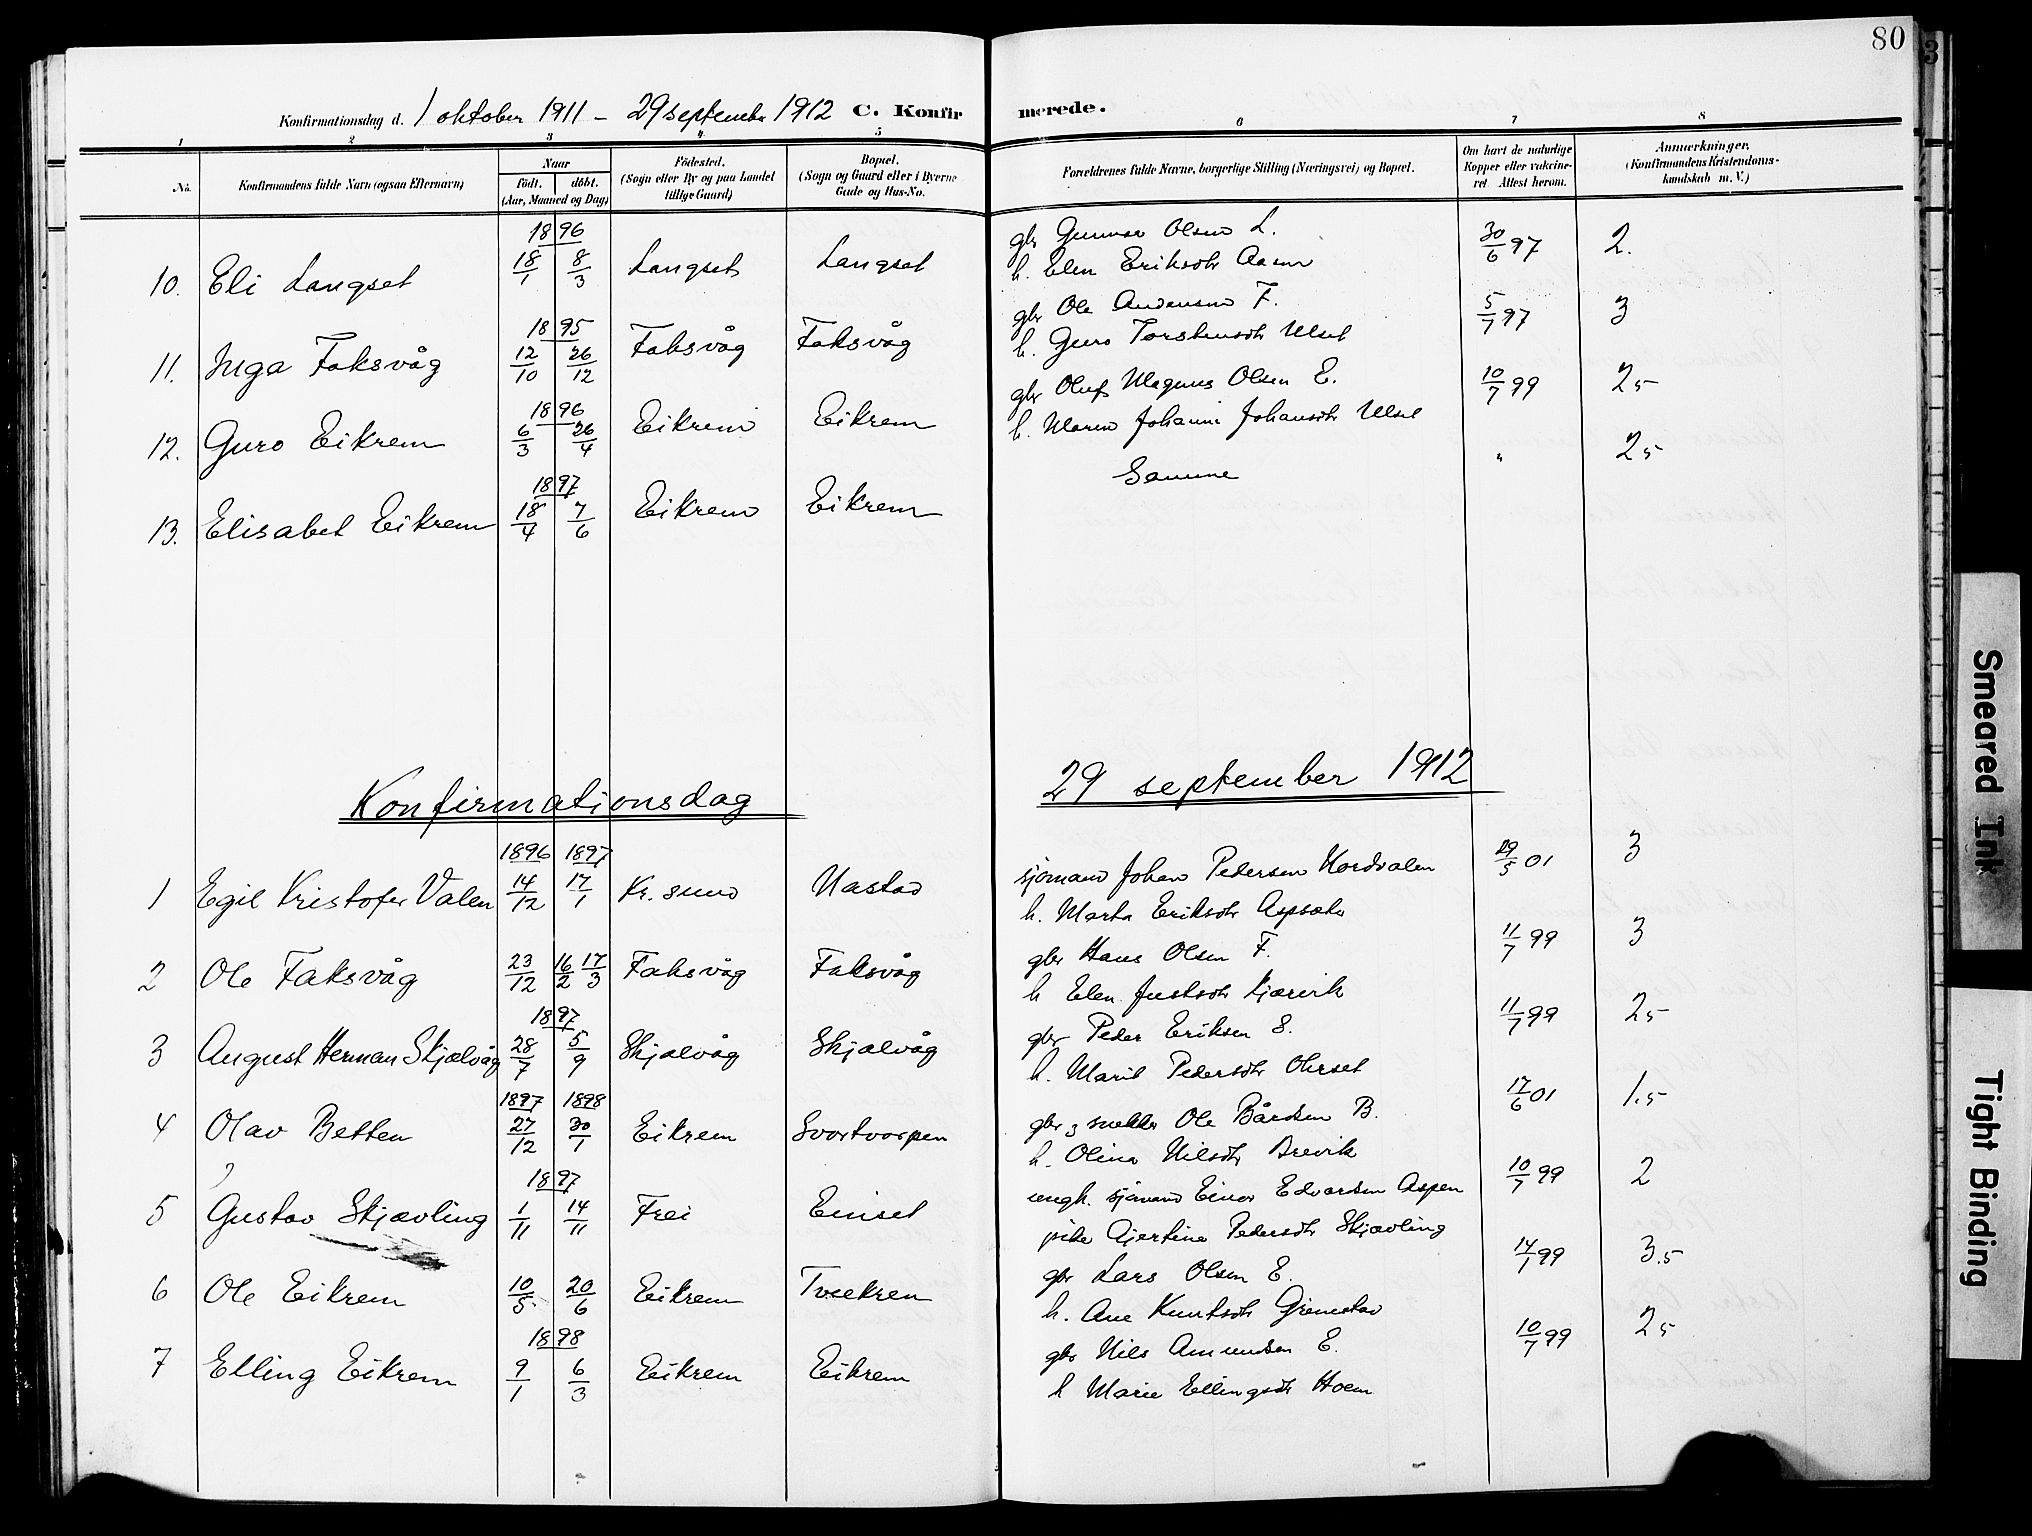 80
Konfirmationsdag d. 1 oktober 1911 - 29 september 1912 C. Konfirmerede.
1 2 3 4 5 6 7 8
No. Konfirmandens fulde Navn (ogsaa Efternavn) Naar født. døbt. (Aar, Maaned og Dag) Fødested. (Sogn eller By og paa Landet tillige Gaard) Bopæl. (Sogn og Gaard eller i Byerne Gade og Hus-No. Forældrenes fulde Navne, borgerlige Stilling (Næringsvei) og Bopæl. Om havt de naturlige Kopper eller vakcineret Attest herom. Anmærkninger. (Konfirmandens Kristendomskundskab m. V.)
1896
10. Eli Langset 18/1 8/3 Langset Langset gbr Gunnar Olsen L. 30/6 97 2.
h. Elen Eriksdtr Aasen
1895
11. Inga Faksvåg 12/10 26/12 Faksvåg Faksvåg gbr Ole Andersen F. 5/7 97 3
h. Guro Torstensdtr Ulset
1896
12. Guro Eikrem 6/3 26/4 Eikrem Eikrem gbr Oluf Magnus Olsen E. 10/7 99 2,5
h. Maren Johanne Johansdtr Ulset
1897
13. Elisabet Eikrem 18/4 7/6 Eikrem Eikrem Samme " 2,5
Konfirmationsdag 29 september 1912
1896 1897
1 Egil Kristofer Valen 14/12 17/1 Kr.sund Nastad sjømand Johan Pedersen Nordvalen 29/5 01 3
h. Marta Eriksdtr Aspsæter
2 Ole Faksvåg 23/12 16/2 17/3 Faksvåg Faksvåg gbr Hans Olsen F. 11/7 99 3
h Elen Justsdtr Kjærvik
1897
3 August Herman Skjælvåg 28/7 5/9 Skjælvåg Skjælvåg gbr Peder Eriksen S. 11/7 99 2,5
h. Marit Pedersdtr Oterset
1897 1898
4 Olav Betten 27/12 30/1 Eikrem Svortvorpen gbr & snekker Ole Bårdsen B. 17/6 01 1.5
h. Olina Nilsdtr Brevik
1897
5 Gustav Skjævling 1/11 14/11 Frei Einset ungk. sjømand Einar Edvardsen Aspen 10/7 99 2
pike Gjertine Pedersdtr Skjævling
6 Ole Eikrem 10/5 20/6 Eikrem Tveekren gbr Lars Olsen E. 14/1 99 3.5
h. Ane Knutsdtr Gjemstav
1898
7 Elling Eikrem 9/1 6/3 Eikrem Eikrem gbr Nils Amundsen E. 10/7 99 2,5
h Marie Ellingsdtr Hoem
Smeared Ink
Tight Binding